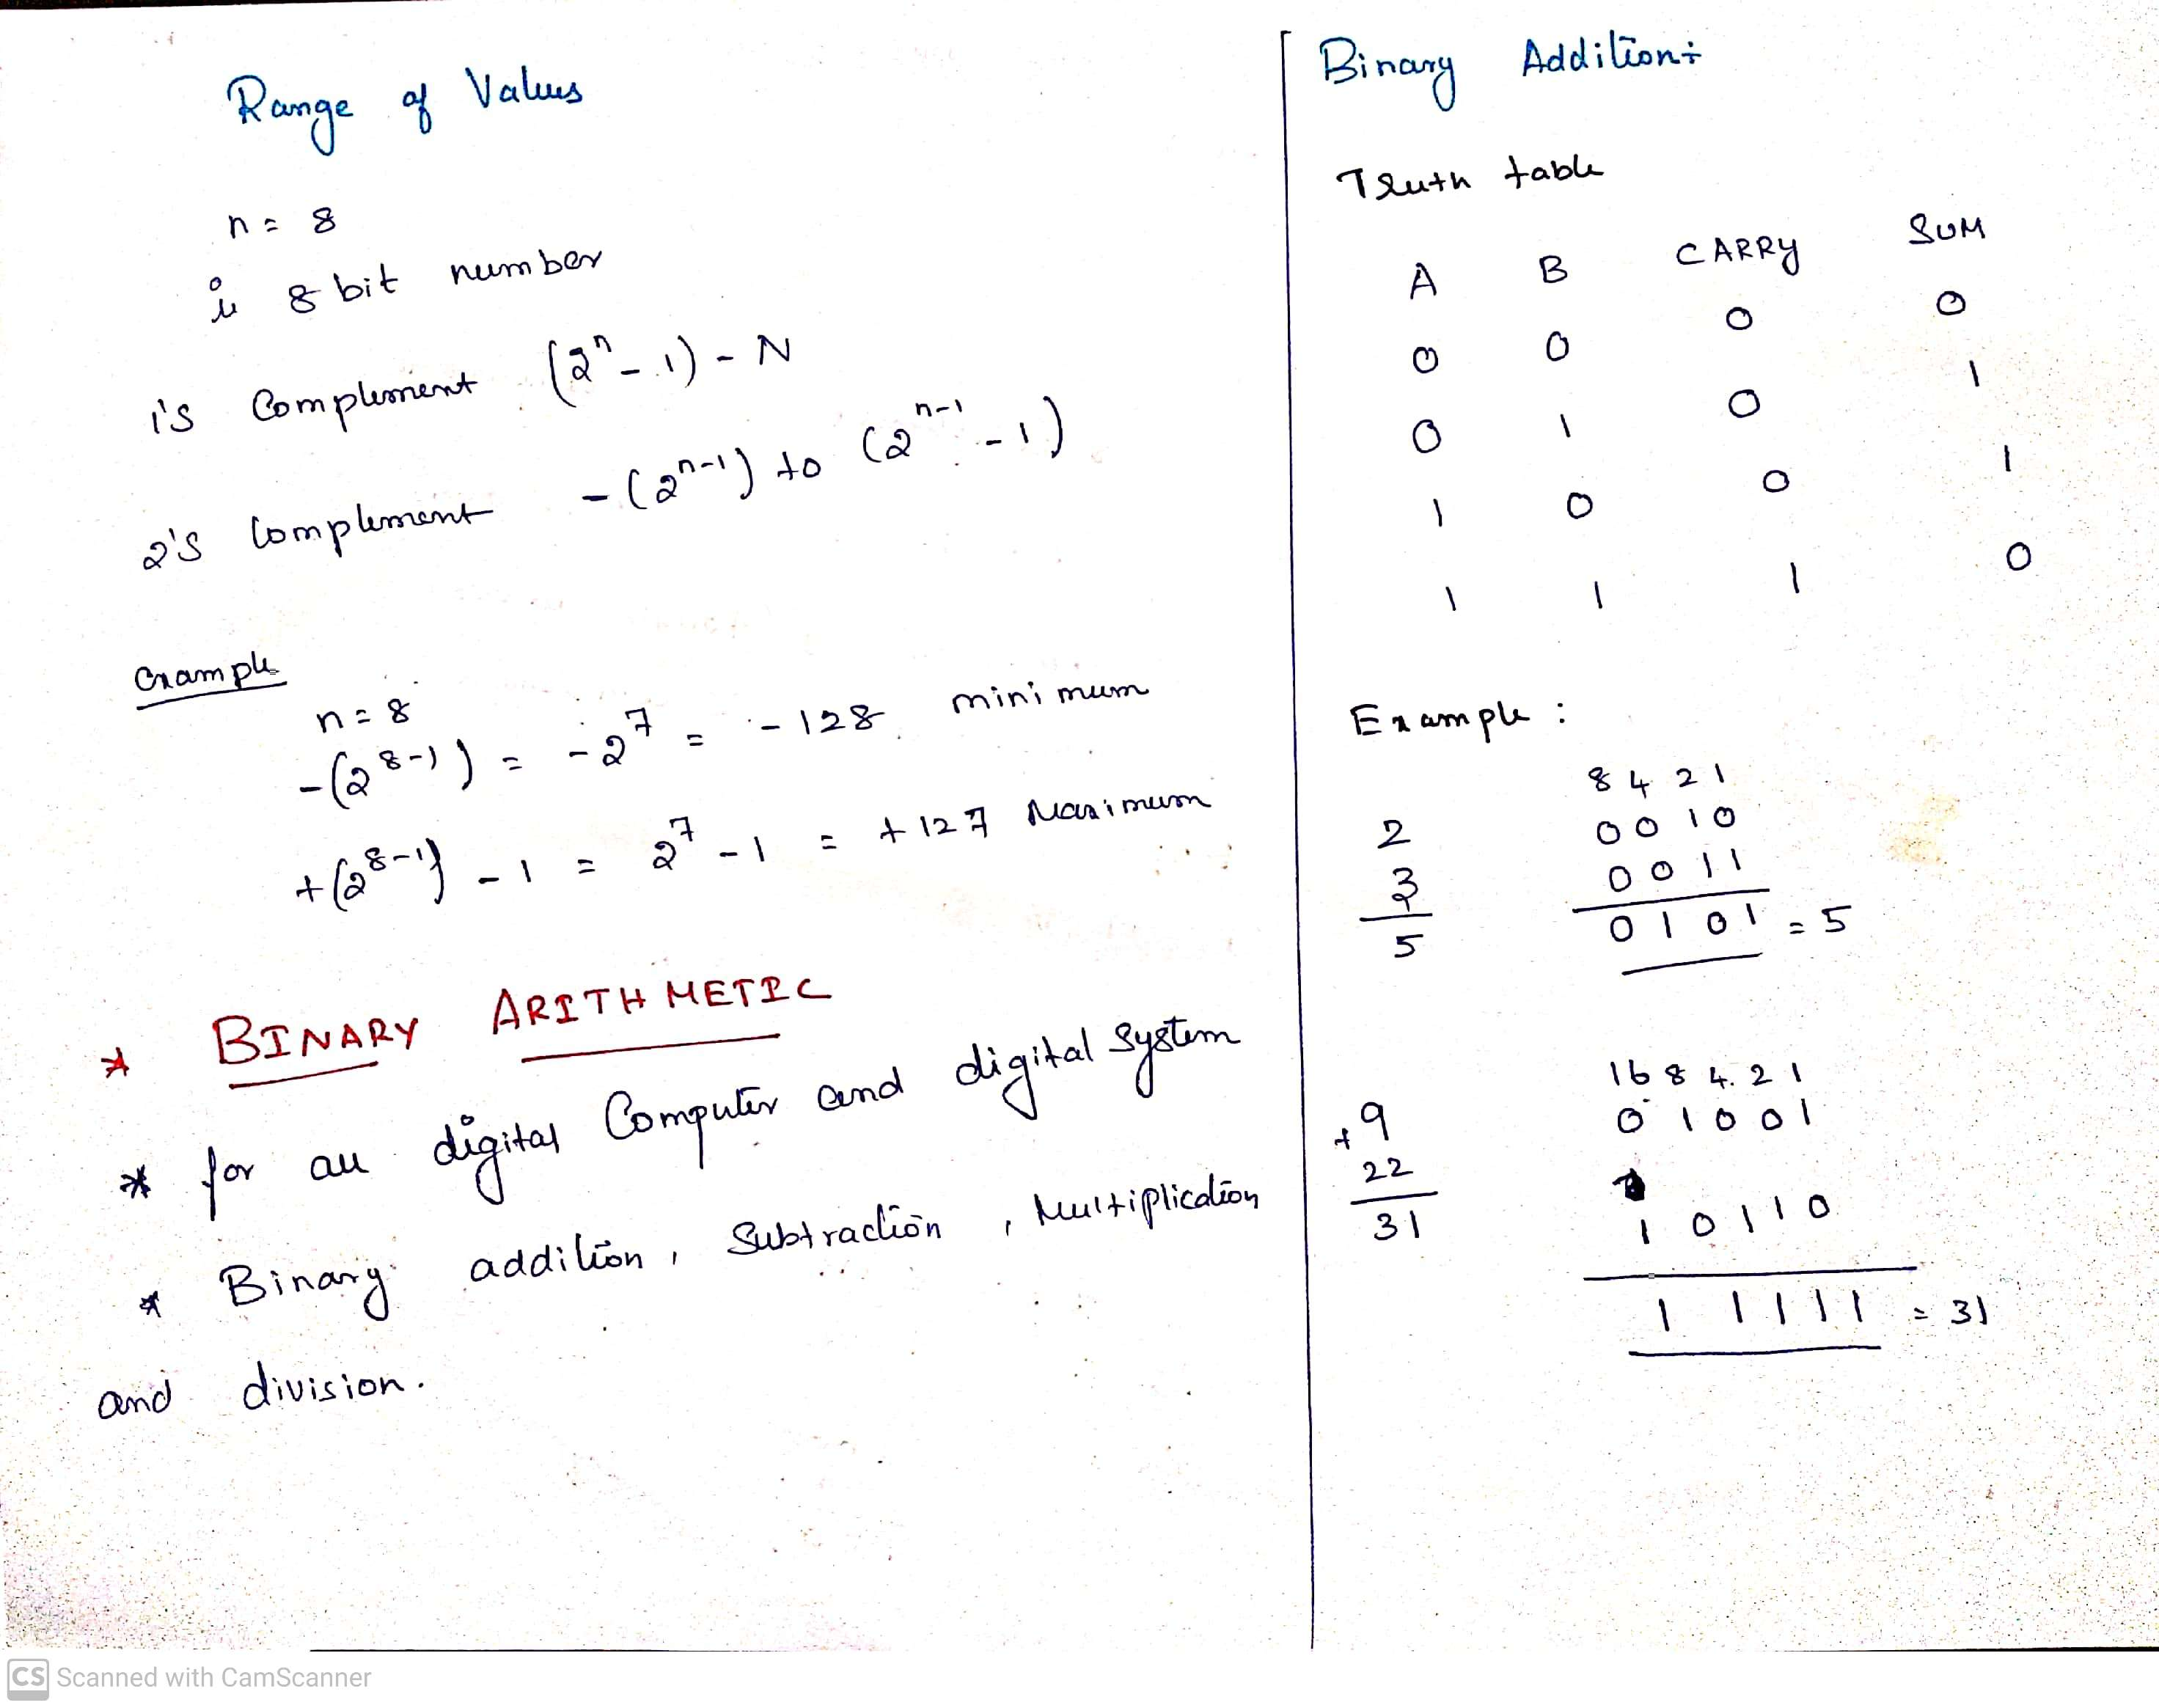 Range of Values
n = 8
is 8 bit number
1's Complement (2ⁿ - 1) - N
2's Complement - (2ⁿ⁻¹) to (2ⁿ⁻¹ - 1)
Example
n = 8
-(2⁸⁻¹) = -2⁷ = -128 minimum
+(2⁸⁻¹) - 1 = 2⁷ - 1 = +127 Maximum
* BINARY ARITHMETIC
* for all digital Computer and digital System
* Binary addition, Subtraction, Multiplication
and division.
Binary Addition:
Truth table
A B CARRY SUM
0 0 0 0
0 1 0 1
1 0 0 1
1 1 1 0
Example :
8 4 2 1
2 0 0 1 0
3 0 0 1 1
5 0 1 0 1 = 5
16 8 4 2 1
+ 9 0 1 0 0 1
22 1 0 1 1 0
31 1 1 1 1 1 = 31
CS Scanned with CamScanner